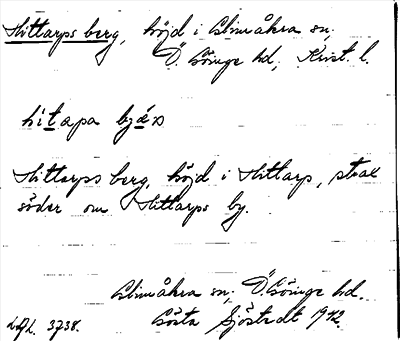 Hittarps berg, höjd i Glimåkra sn,
Ö. Göinge hd, Krist. l.
hitapa byær
Hittarps berg, höjd i Hittarp, strax
söder om Hittarps by.
Glimåkra sn, Ö. Göinge hd.
Gösta Sjöstedt 1942.
3738.